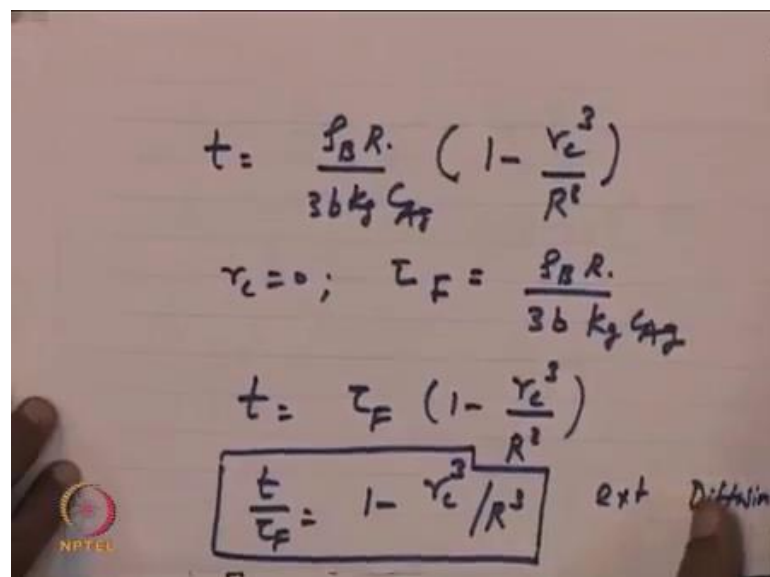 t = ρ_B R. / 3 b k_g C_Ag ( 1 - r_c^3 / R^3 )
r_c = 0 ; τ_F = ρ_B R. / 3 b k_g C_Ag
t = τ_F ( 1 - r_c^3 / R^3 )
t / τ_F = 1 - r_c^3 / R^3 ext Diffusion
NPTEL